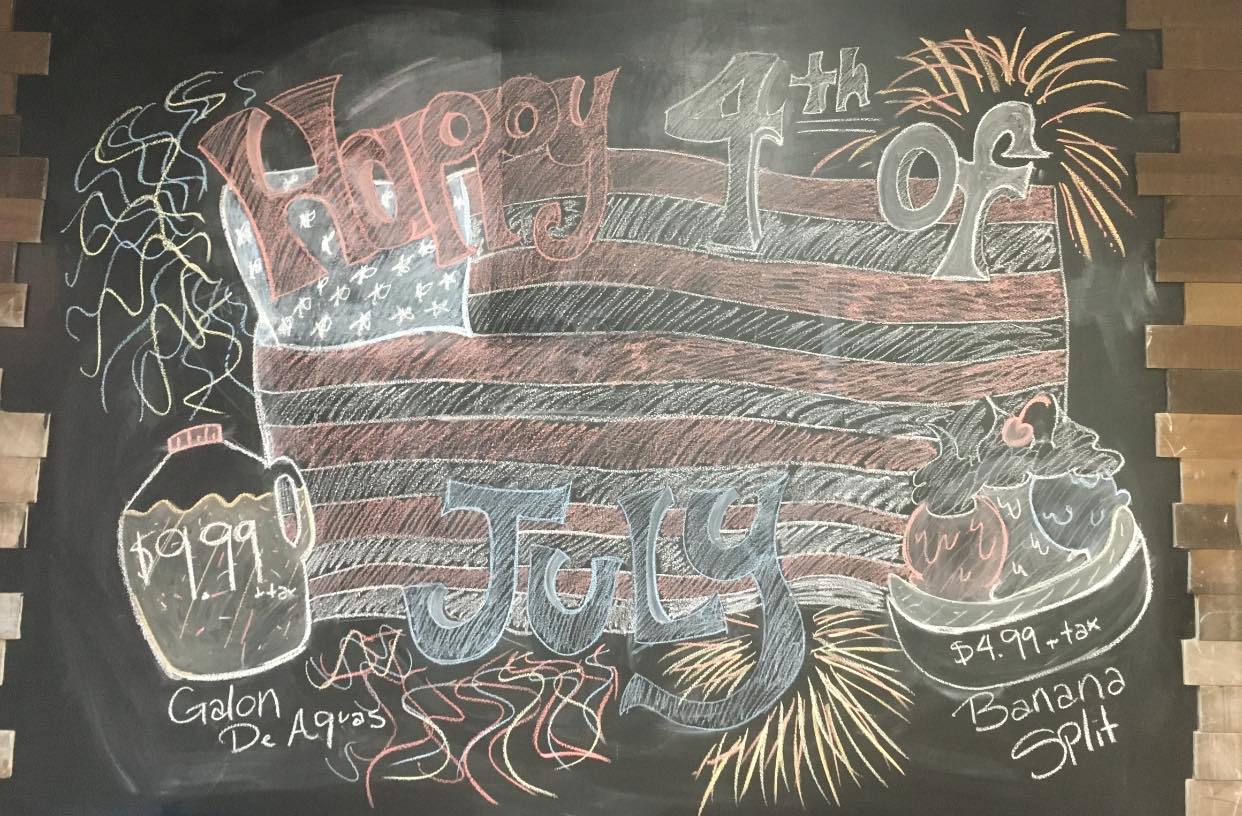 Happy 4th of
July
$9.99
+tax
Galon
De Aguas
$4.99 +tax
Banana
Split